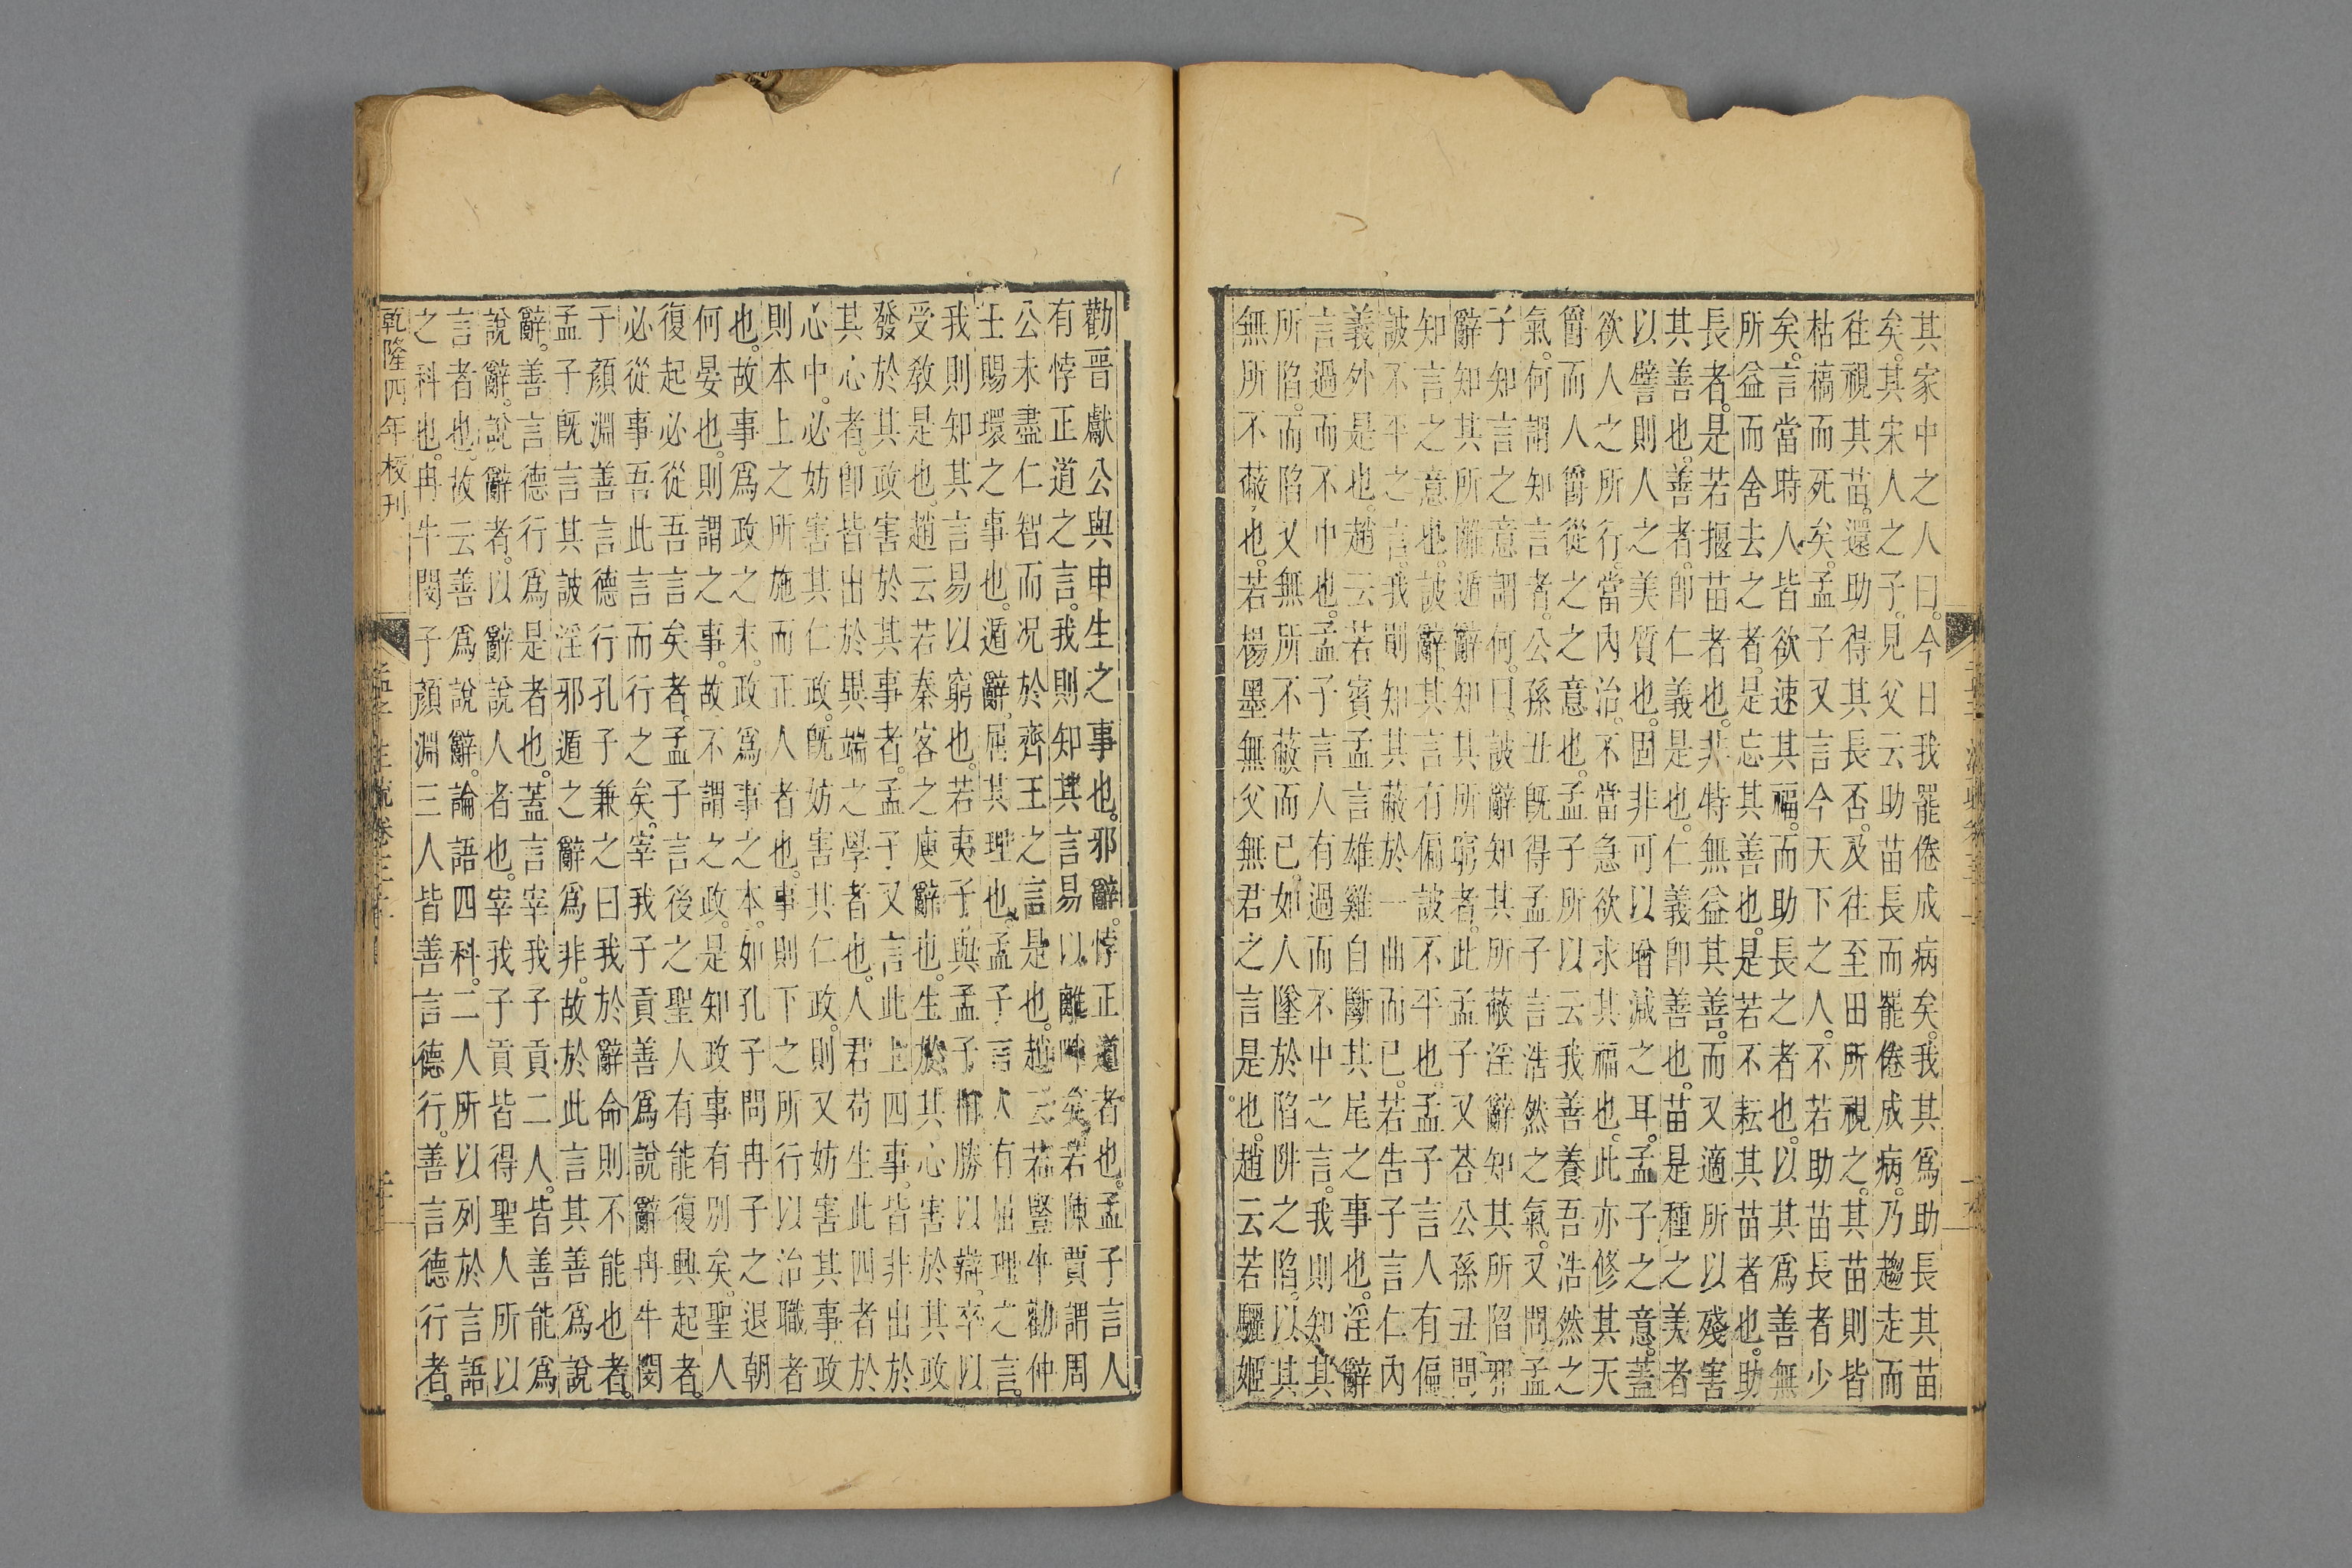 其家中之人曰。今日我罷倦成病矣。我其爲助長其苗
矣。其宋人之子。見父云助苗長而罷倦成病。乃趨走而
往視其苗。還助得其長否。及往至田所視之。其苗則皆
枯槁而死矣。孟子又言今天下之人。不若助苗長者少
矣。言當時人皆欲速其福。而助長之者也。以其爲善無
所益而舍去之者。是忘其善也。是若不耘其苗者也。助
長者。是若揠苗者也。非特無益其善。而又適所以殘害
其善也。善者卽仁義是也。仁義卽善也。苗是種之美者
以譬則人之美質也。固非可以增減之耳。孟子之意。蓋
欲人之所行。當內治。不當急欲求其福也。此亦修其天
爵而人爵從之之意也。孟子所以云我善養吾浩然之
氣。何謂知言者。公孫丑旣得孟子言浩然之氣。又問孟
子知言之意謂何。曰。詖辭知其所蔽淫辭知其所陷邪
辭知其所離遁辭知其所窮者。此孟子又荅公孫丑問
知言之意也。詖辭。其言有偏詖不平也。孟子言人有偪
詖不平之言。我則知其蔽於一曲而已。若告子言仁內
義外是也。趙云若賓孟言雄雞自斷其尾之事也。淫辭
言過而不中也。孟子言人有過而不中之言。我則知其
所陷。而陷又無所不蔽而已。如人墜於陷阱之陷。以其
無所不蔽也。若楊墨無父無君之言是也。趙云若驪姬
勸晉獻公與申生之事也。邪辭。悖正道者也。孟子言人
有悖正道之言。我則知其言易以離畔矣。若陳賈謂周
公未盡仁智而况於齊王之言是也。趙云若豎牛勸仲
壬賜環之事也。遁辭。屈其理也。孟子言人有屈理之言。
我則知其言易以窮也。若夷子與孟子相勝以辯。卒以
受教是也。趙云若秦客之廋辭也。生於其心害於其政
發於其政害於其事者。孟子又言此上四事。皆非出於
其心者。卽皆出於異端之學者也。人君苟生此四者於
心中。必妨害其仁政。旣妨害其仁政。則又妨害其事政
則本上之所施而正人者也。事則下之所行以治職者
也。故事爲政之末。政爲事之本。如孔子問冉子之退朝
何晏也。則謂之事。故不謂之政。是知政事有別矣。聖人
復起必從吾言矣者。孟子言後之聖人有能復興起者。
必從事吾此言而行之矣。宰我子貢善爲說辭冉牛閔
于顏淵善言德行孔子兼之曰我於辭命則不能也者。
孟子旣言其詖淫邪遁之辭爲非。故於此言其善爲說
辭。善言德行爲是者也。蓋言宰我子貢二人。皆善能爲
說辭。說辭者。以辭說人者也。宰我子貢皆得聖人所以
言者也。故云善爲說辭。論語四科。二人所以列於言語
之科也。冉牛閔子顏淵三人皆善言德行。善言德行者。
乾隆四年校刊